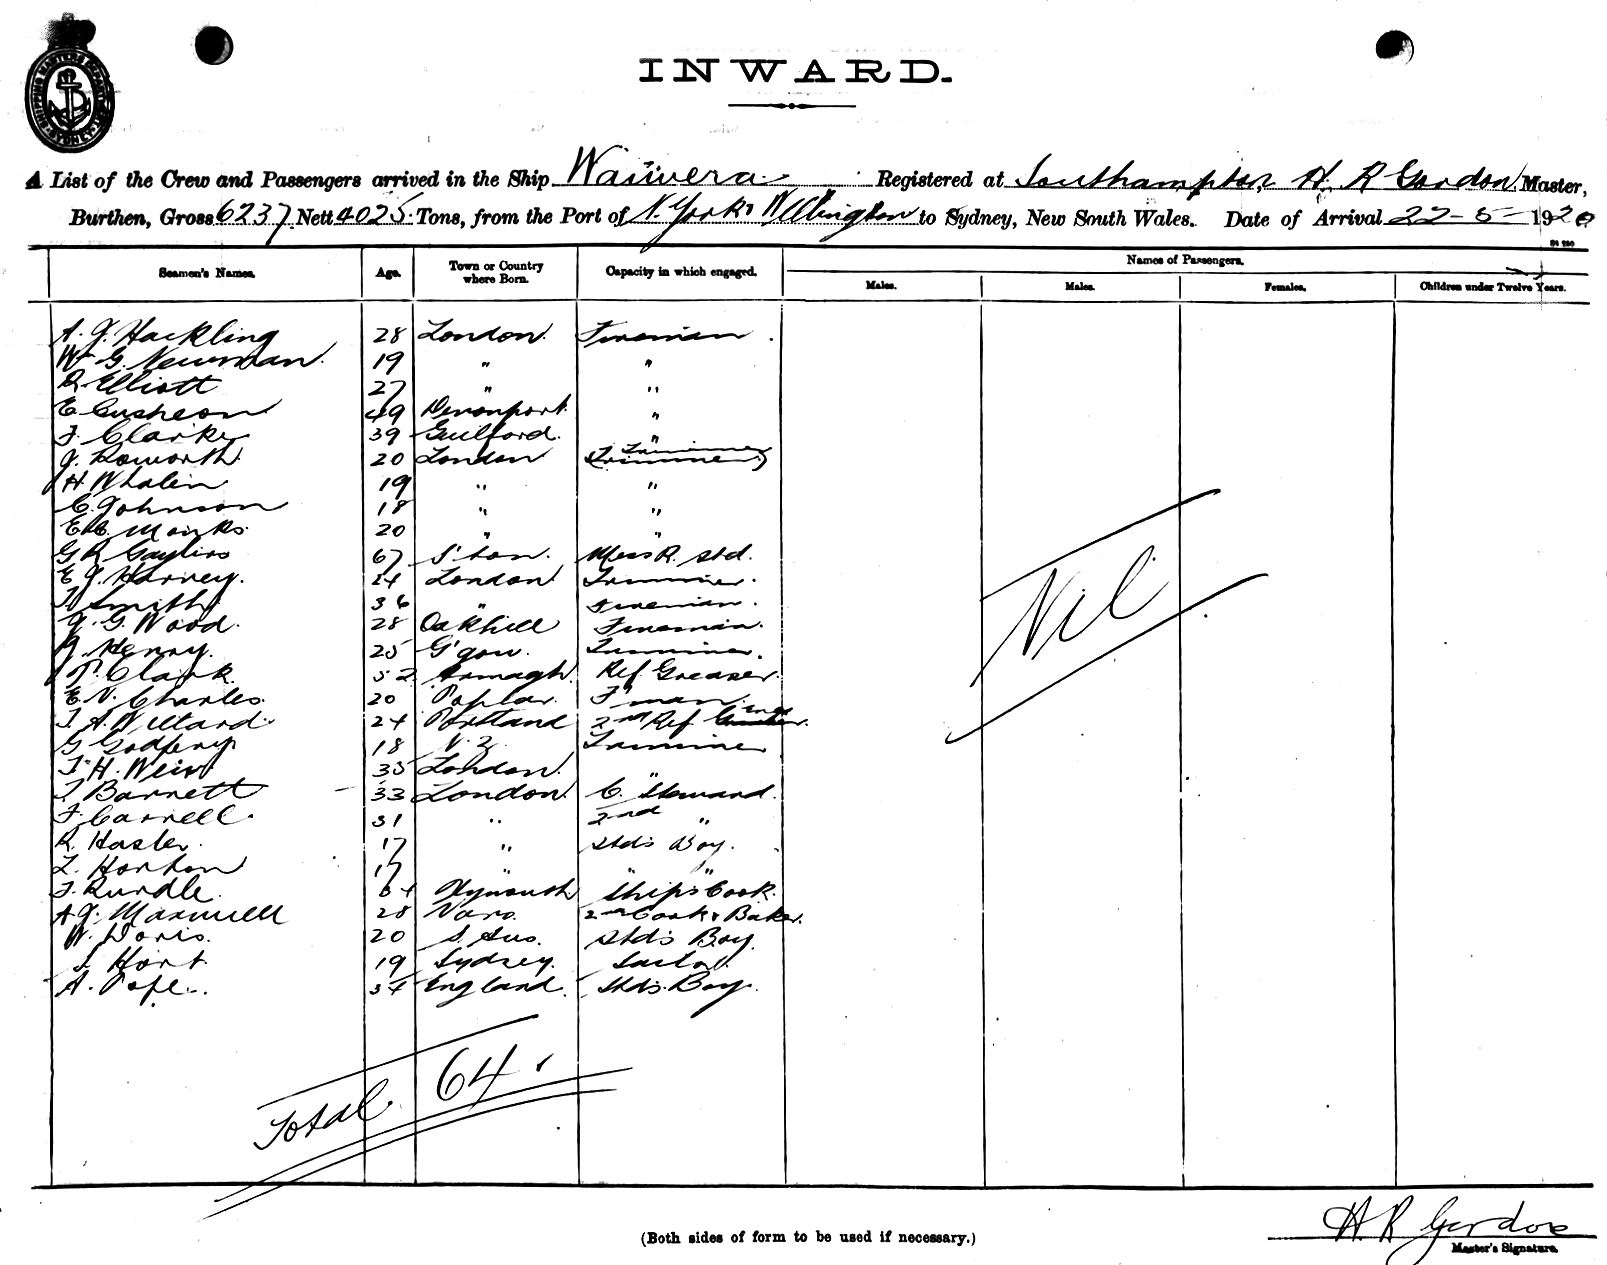 INWARD.
A List of the Crew and Passengers arrived in the Ship Waiwera Registered at Southampton H. R Gordon Master,
Burthen, Gross 6237 Nett 4025 Tons, from the Port of N. York & Wellington to Sydney, New South Wales. Date of Arrival 22-5-1920
Seamen's Names. Age. Town or Country where Born. Capacity in which engaged. Names of Passengers.
Males. Males. Females. Children under Twelve Years.
A. J. Hackling 28 London Fireman
Wm G. Newman 19 " "
R Elliott 27 " "
E Cusheon 49 Devonport "
F Clarke 39 Guilford "
J. Roworth 20 London Trimmer
H Whalen 19 " "
C. Johnson 18 " "
E.C. Monks 20 "
G R 67 S'ton. Mess R. Std.
E J. Harvey. 24 London Trimmer.
T Smith 36 " Fireman.
J. G. Wood. 28 Oakhill Fireman.
R. Henry. 25 G'gow. Trimmer.
P. Clark 52 Armagh Ref Greaser.
E. V. Charles. 20 Poplar F'man
J. A. Willard 24 Portland 2nd Ref
G Godfrey 18 N.Z. Trimmer
J. H. Weir 35 London. "
J Barnett 33 London C. Steward.
F. Carrell. 31 " 2nd "
R. Hasler. 17 " Std's Boy.
L. Horton 17 " "
F. Rundle. 64 Plymouth Ship's Cook.
A J. Maxwell 28 2nd Cook & Baker.
W. Doris. 20 S. Aus. Std's Boy.
J. Hort 19 Sydney. Sailor.
A. Pope. 34 England. Std's Boy.
Nil
Total 64.
H R Gordon
(Both sides of form to be used if necessary.)
Master's Signature.